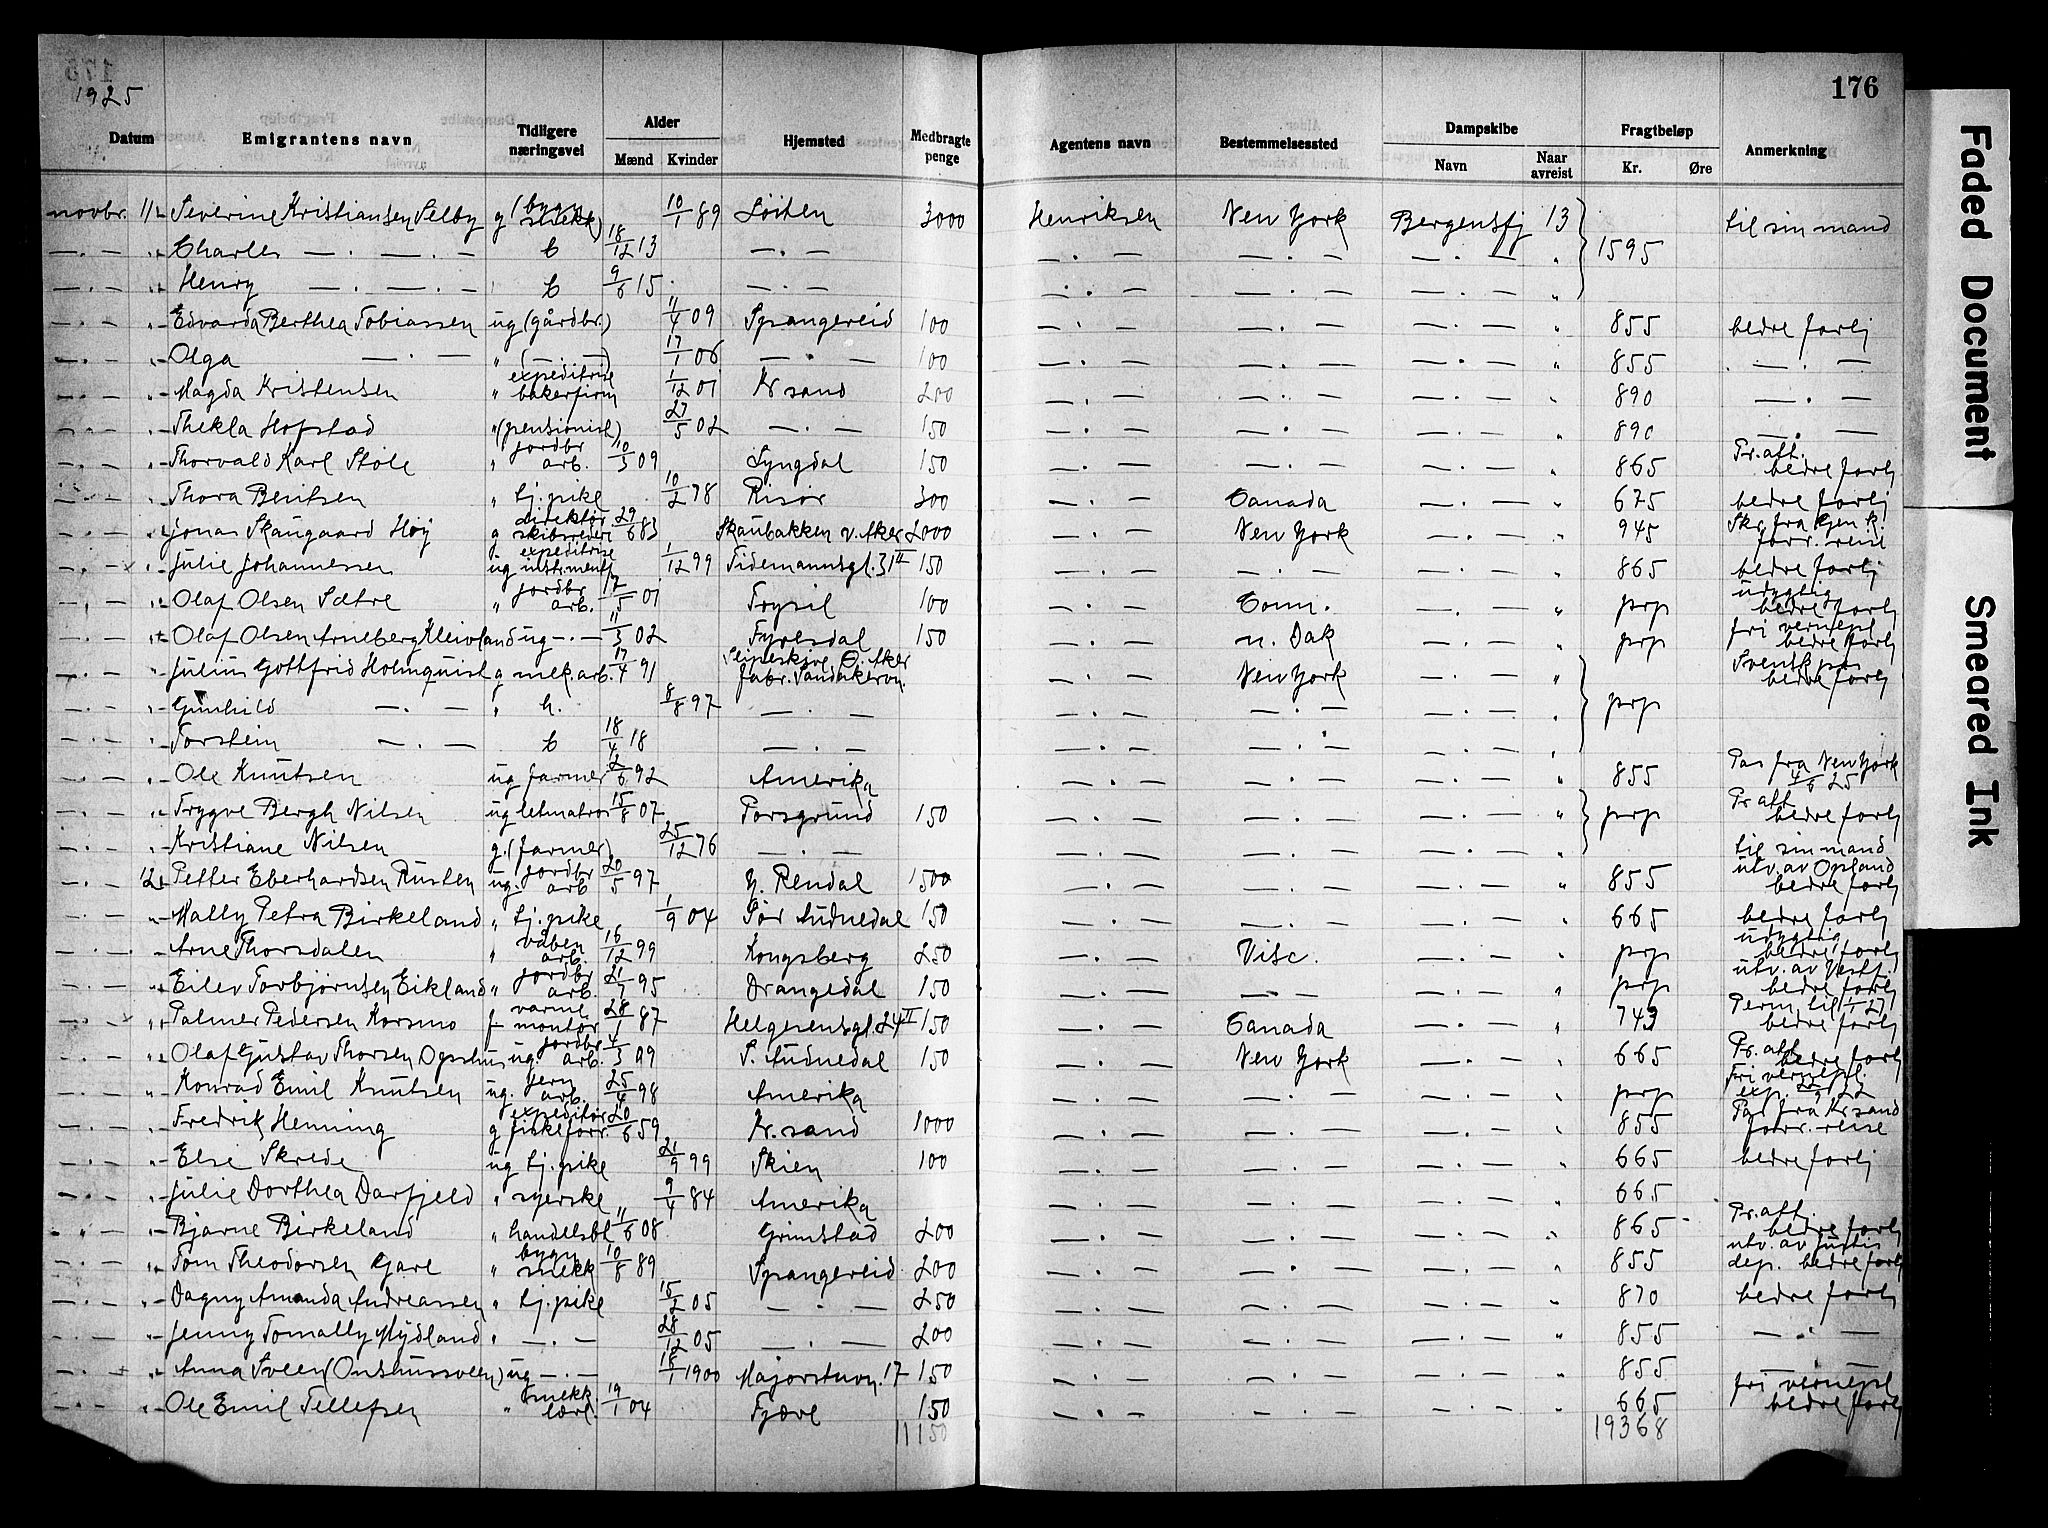 176
1925
Datum Emigrantens navn Tidligere næringsvei Alder Mænd Kvinder Hjemsted Medbragte penge Agentens navn Bestemmelsessted Dampskibe Navn Naar avreist Fragtbeløp Kr. Øre Anmerkning
novbr. 11 Severine Kristiansen Selby g (bygn snekk) 10/1 89 Löiten 3000 Henriksen New York Bergensfj 13 til sin mand
— . — " Charles — . — . — b 18/12 13 — . — — . — — . — — . — " 1595
— . — " Henry — . — . — b 9/6 15 — . — — . — — . — — . — "
— . — " Edvarda Berthea Tobiassen ug (gårdbr.) 11/4 09 Spangereid 100 — . — — . — — . — " 855 bedre forhj
— . — " Olga — . — " (— . —) 17/1 06 — . — 100 — . — — . — — . — " 855 — . —
— . — " Magda Kristensen " expeditrise bakerfirm 1/12 01 Kr sand 200 — . — — . — — . — " 890 — . —
— . — " Thekla Hofstad " (pensionist) 27/5 02 — . — 150 — . — — . — — . — " 890 — . —
— . — " Thorvald Karl Støle " jordbr arb. 10/3 09 Lyngdal 150 — . — — . — — . — " 865 Pr. att. bedre forhj
— . — " Thora Bentsen " tj. pike 10/2 78 Risør 300 — . — Canada — . — " 675 bedre forhj
— . — " Jonas Skaugaard Høy g direktør skibsrederi 29/6 83 Skaubakken v. Aker 2000 — . — New York — . — " 945 forr. reise
— . — " Julie Johannessen ug expeditrise instrument 1/12 99 Tidemannsgt. 31 II 150 — . — — . — — . — " 865 bedre forhj
— . — " Olaf Olsen Sætre " jordbr arb. 17/5 01 Trysil 100 — . — Conn. — . — " prp udygtig bedre forhj
— . — " Olaf Olsen Arneberg Kleivland ug — . — 11/3 02 Fyresdal 150 — . — n. Dak — . — " prp fri vernepl bedre forhj
— . — " Julius Gottfrid Holmquist g mek. arb. 17/4 91 Aker — . — New York — . — " Svensk pas bedre forhj
— . — " Gunhild — . — " h. 8/8 97 — . — — . — — . — — . — " prp
— . — " Torstein — . — b 18/4 18 — . — — . — — . — — . — "
— . — " Ole Knutsen ug farmer 2/6 92 Amerika — . — — . — — . — " 855 Pas fra New York 4/6 25
— . — " Trygve Bergh Nilsen ug letmatros 15/8 07 Porsgrund 150 — . — — . — — . — " prp Pr att bedre forhj
— . — " Kristiane Nilsen g. (farmer) 25/12 76 — . — — . — — . — — . — " til sin mand
— . — 12 Petter Eberhardsen Rusten ug. jordbr arb 20/5 97 Y. Rendal 1500 — . — — . — — . — " 855 utv. av Opland bedre forhj
— . — " Mally Petra Birkeland " tj. pike 1/9 04 Sør Audnedal 150 — . — — . — — . — " 665 bedre forhj
— . — " Arne Thorsdalen " våben arb. 16/12 99 Kongsberg 250 — . — Visc. — . — " prp udygtig bedre forhj
— . — " Eilev Torbjørnsen Eikland " jordbr arb. 21/7 95 Drangedal 150 — . — — . — — . — " prp utv. av Vestf. bedre forhj
— . — " Palmer Pedersen Korsmo f varme montør 28/1 87 Helgesensgt. 24 II 150 — . — Canada — . — " 743 Perm til 1/1 27 bedre forhj
— . — " Olaf Gustav Thorsen ug. jordbr arb. 4/3 99 S. Audnedal 150 — . — New York — . — " 665 Pr. att bedre forhj
— . — " Konrad Emil Knutsen ug. jern arb. 25/4 98 Amerika — . — — . — — . — " prp Fri vernepl. exp. 22/9 22
— . — " Fredrik Henning g expeditør fiskeforr. 20/6 59 Kr. sand 1000 — . — — . — — . — " 855 Pas fra Kr sand forr. reise
— . — " Else Skrede ug tj. pike 21/9 99 Skien 100 — . — — . — — . — " 665 bedre forhj
— . — " Julie Dorthea Darfjeld " syerske 9/4 84 Amerika — . — — . — — . — " 665
— . — " Bjarne Birkeland " handelsbt 11/6 08 Grimstad 200 — . — — . — — . — " 865 Pr. att. bedre forhj
— . — " Tom Theodorsen Gare " bygn snekk 10/8 89 Spangereid 200 — . — — . — — . — " 855 utv. av Justis dep. bedre forhj
— . — " Dagny Amanda Andreassen " tj. pike 15/2 05 — . — 250 — . — — . — — . — " 870 bedre forhj
— . — " Jenny Tomally Hydland " — . — 28/12 05 — . — 200 — . — — . — — . — " 855 — . —
— . — " Anna Sveen (Onshussveen) ug — . — 18/1 1900 Majorstuvn. 17 150 — . — — . — — . — " 855 — . —
— . — " Ole Emil Tellefsen " snekk lærl. 19/1 04 Fjære 150 — . — — . — — . — " 665 fri vernepl bedre forhj
11150 19368
Faded Document
Smeared Ink